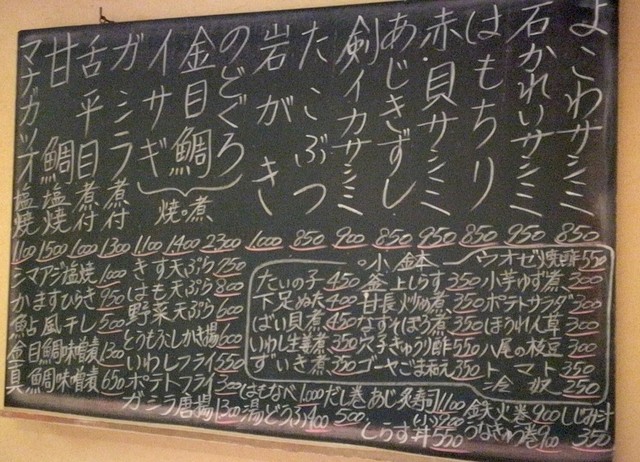 よこわサシミ 850
石かれいサシミ 950
はもちり 850
赤貝サシミ 950
あじきずし 850
剣イカサシミ 900
たこぶつ 850
岩がき 1000
のどぐろ 2300
金目鯛 1400
イサギ 1100
焼・煮
ガシラ 煮付 1300
舌平目 煮付 1000
甘鯛 塩焼 1500
マナガツオ 塩焼 1100
シマアジ塩焼 1000
かますひらき 950
金目鯛味噌漬 1300
真鯛味噌漬 650
きす天ぷら 750
はも天ぷら 800
野菜天ぷら 600
とうもろこしかき揚 600
いわしフライ 550
ポテトフライ 300
ガシラ唐揚 1300
。小鉢
たいの子 450
下足ぬた 400
ばい貝煮 450
いわし生姜煮 350
ずいき煮 350
釜上しらす 350
甘長炒め煮 350
なすそぼろ煮 350
穴子きゅうり酢 550
ゴーヤごま和え 350
ウオゼ焼酢 550
小芋ゆず煮 300
ポテトサラダ 300
ほうれん草 300
八尾の枝豆 300
トマト 350
冷奴 250
はもなべ 1000
湯どうふ 400
だし巻 500
あじ炙寿司 1100
しらす丼 550
鉄火巻 900
うなきゅう巻 900
しじみ汁 350